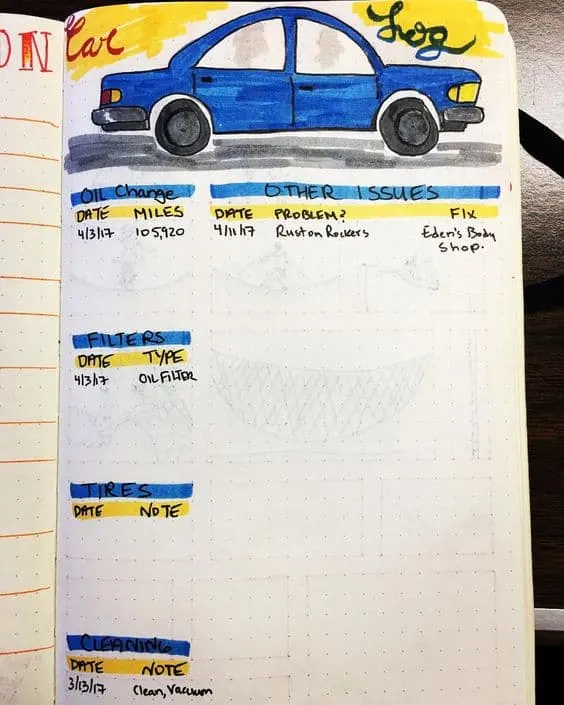 ON
Car Log
OIL Change
DATE MILES
4/3/17 105,920
OTHER ISSUES
DATE PROBLEM? FIX
4/11/17 Rust on Rockers Eden's Body
Shop.
FILTERS
DATE TYPE
4/3/17 OIL FILTER
TIRES
DATE NOTE
CLEANING
DATE NOTE
3/13/17 Clean, Vacuum